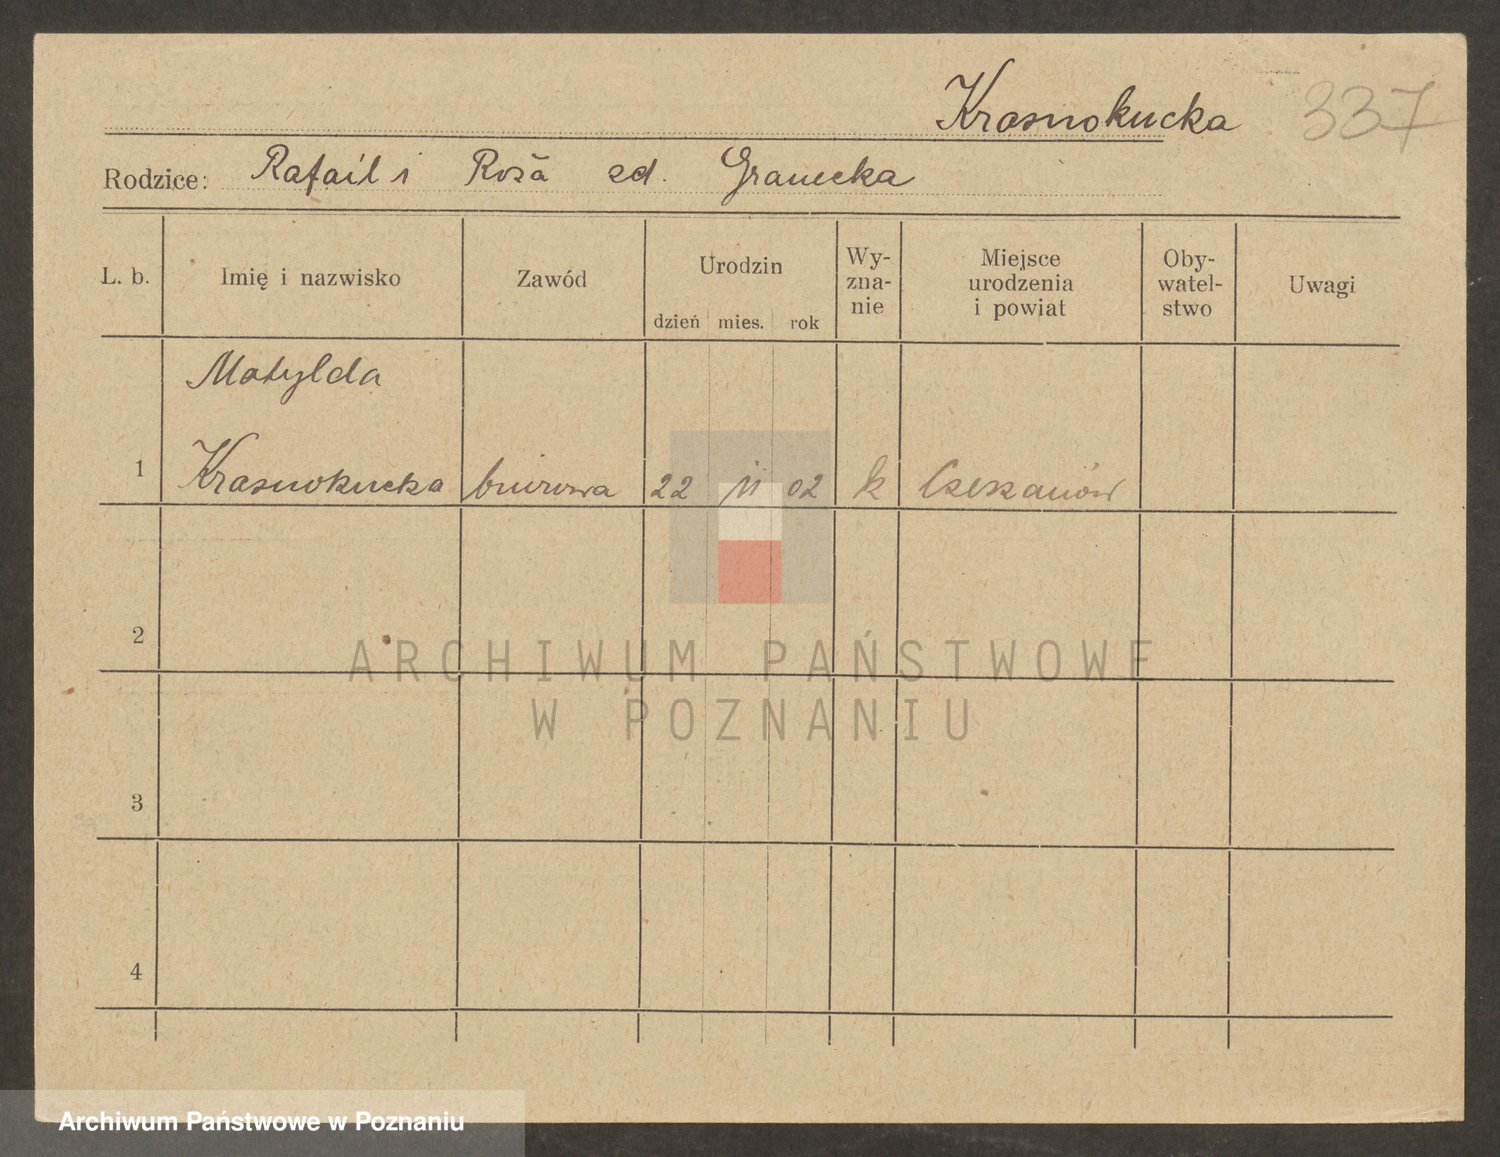 Krasnokucka 337
Rodzice: Rafail i Roza zd. Granecka
L. b. Imię i nazwisko Zawód Urodzin dzień mies. rok Wy-zna-nie Miejsce urodzenia i powiat Oby-watel-stwo Uwagi
Matylda
1 Krasnokucka biurowa 22 11 02 k Czeszanów
2
3
4
ARCHIWUM PAŃSTWOWE
W POZNANIU
Archiwum Państwowe w Poznaniu